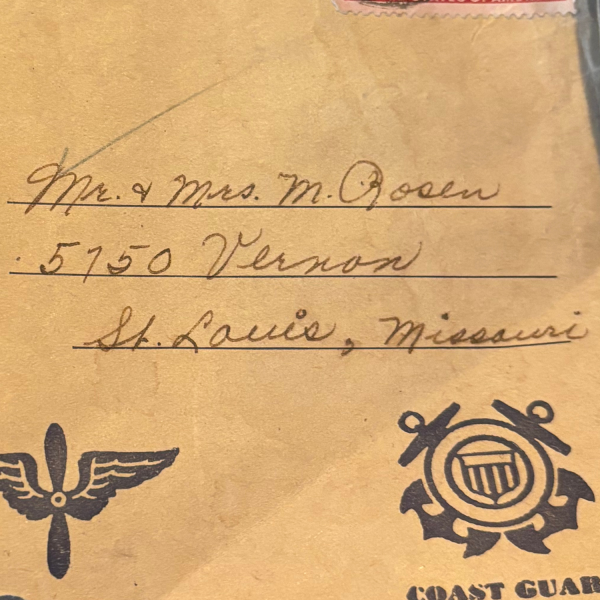 Mr. & Mrs. M. Rosen
5750 Vernon
St. Louis, Missouri
COAST GUAR